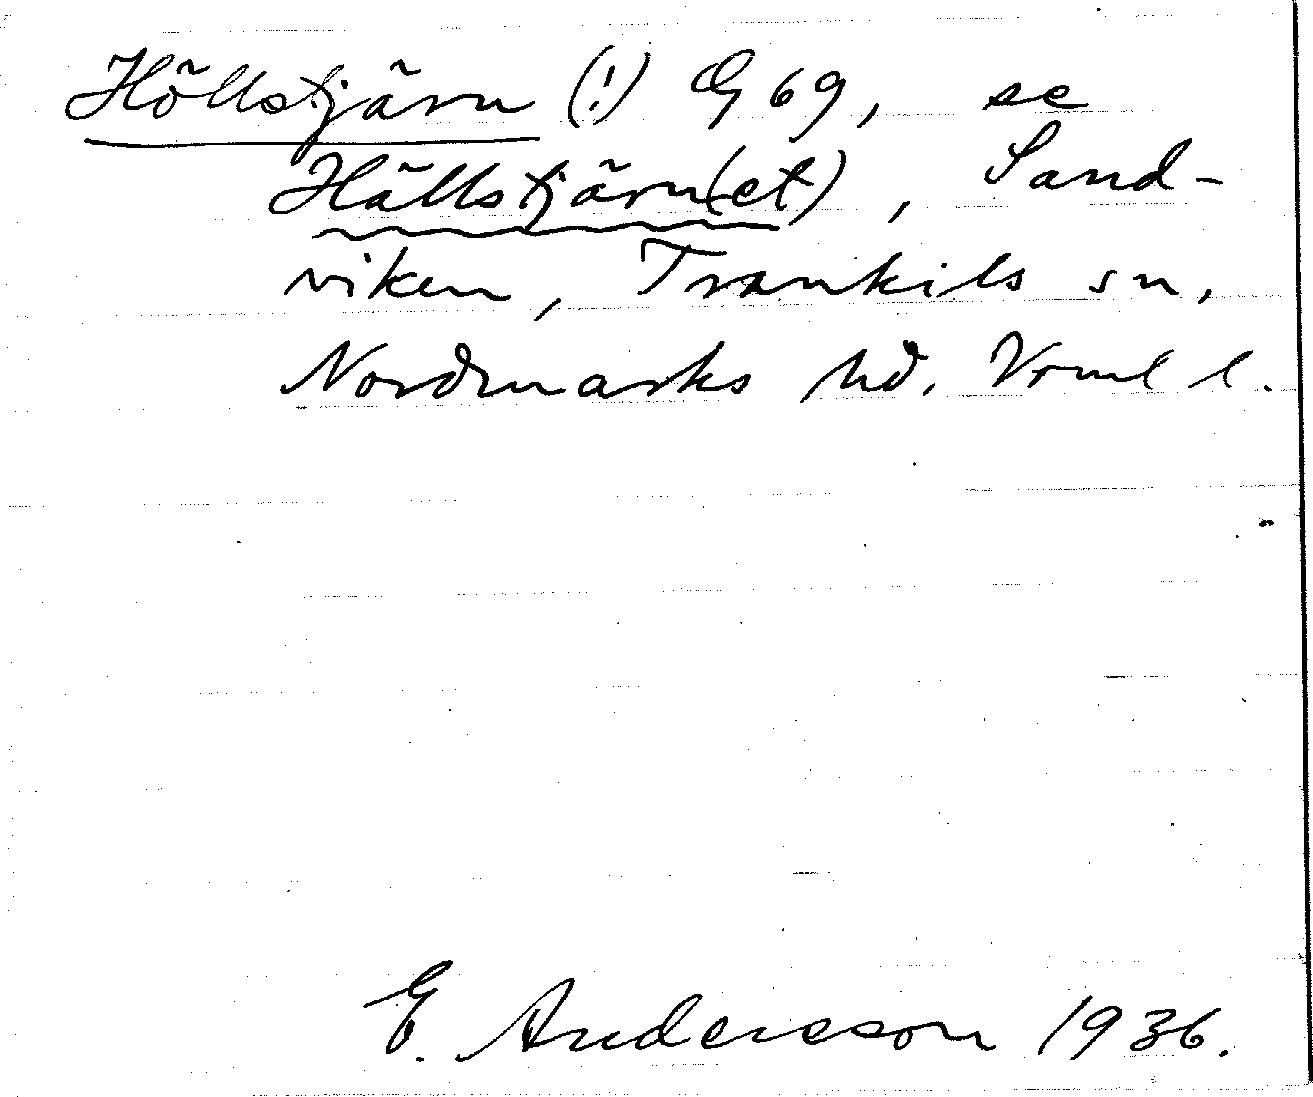 Höllstjärn (!) G 69, se
Hällstjärn(et), Sand-
viken, Trankils sn,
Nordmarks hd. Vrml l.
E. Andersson 1936.